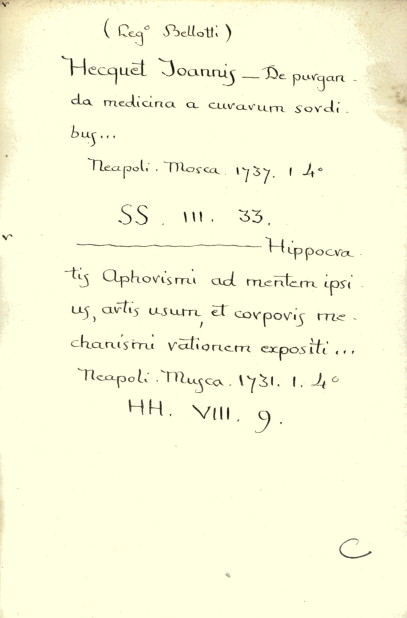 ( Legº Bellotti )
Hecquet Joannis — De purgan-
da medicina a curarum sordi-
bus...
Neapoli. Mosca. 1737. 1 4º
SS. III. 33.
— Hippocra
tis Aphorismi ad mentem ipsi-
us, artis usum, et corporis me-
chanismi rationem expositi...
Neapoli. Musca. 1731. 1. 4º
HH. VIII. 9.
C